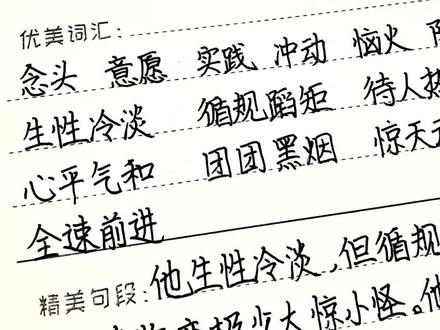 优美词汇:
念头 意愿 实践 冲动 恼火
生性冷淡 循规蹈矩 待人热
心平气和 团团黑烟 惊天
全速前进
精美句段: 他生性冷淡,但循规
大惊小怪。他